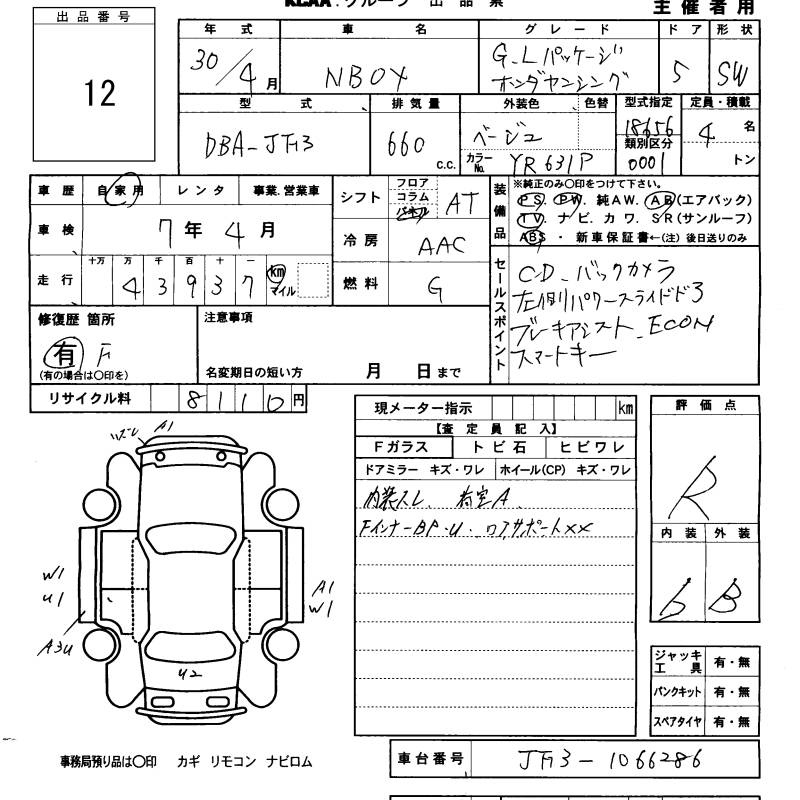 KCAA.グループ 出品票
主催者用
出品番号
12
年式 車名 グレード ドア 形状
30/4月 NBOX G.Lパッケージ ホンダセンシング 5 SW
型式 排気量 外装色 色替 型式指定 定員・積載
DBA-JF3 660 c.c. ベージュ 18656 4 名
類別区分
カラーNo. YR631P 0001 トン
車歴 自家用 レンタ 事業.営業車
シフト フロア コラム パネル AT
装備品
※純正のみ○印をつけて下さい。
PS. PW. 純AW. AB(エアバック)
TV. ナビ. カワ. SR(サンルーフ)
ABS ・ 新車保証書←(注)後日送りのみ
車検 7年 4月
冷房 AAC
走行 十万 万 千 百 十 一
4 3 9 3 7 km マイル
燃料 G
セールスポイント
CD. バックカメラ
左側パワースライドドア
ブレーキアシスト. ECON
スマートキー
修復歴 箇所
有 F
(有の場合は○印を)
注意事項
名変期日の短い方 月 日まで
リサイクル料 8110円
現メーター指示 km
【査定員記入】
Fガラス トビ石 ヒビワレ
ドアミラー キズ・ワレ ホイール(CP) キズ・ワレ
内装スレ、 A
FインナーBP-U. コアサポートXX
評価点
R
内装 外装
b B
A1
W1
U1
A3U
A1
W1
U2
ジャッキ工具 有・無
パンクキット 有・無
スペアタイヤ 有・無
事務局預り品は○印 カギ リモコン ナビロム
車台番号 JF3-1066286